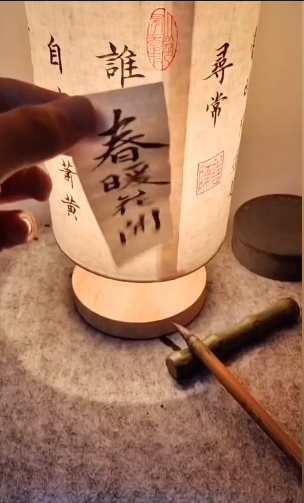 尋常
誰
自
蕭黄
春暖花開